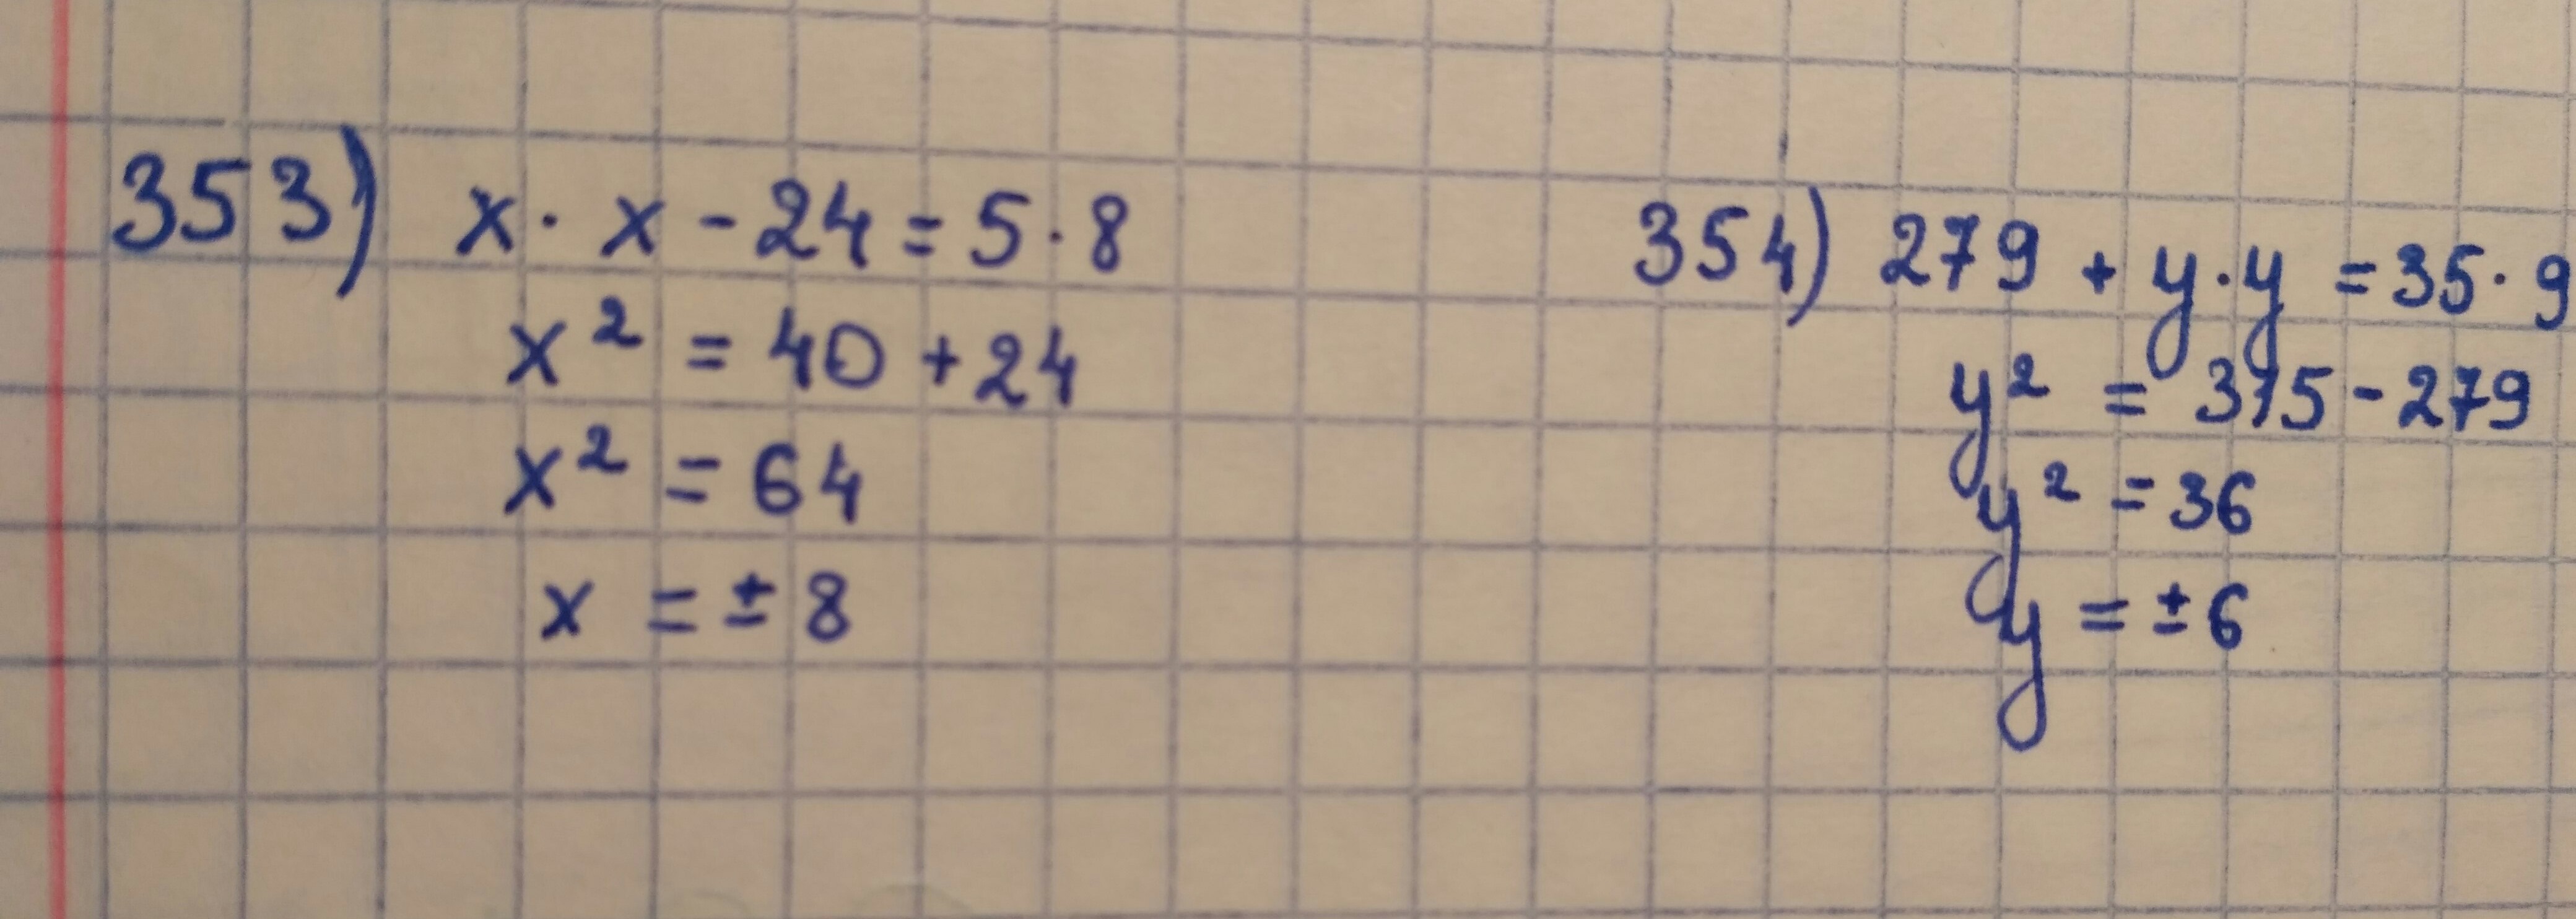 353) x · x - 24 = 5 · 8
x² = 40 + 24
x² = 64
x = ± 8
354) 279 + y · y = 35 · 9
y² = 315 - 279
y² = 36
y = ± 6